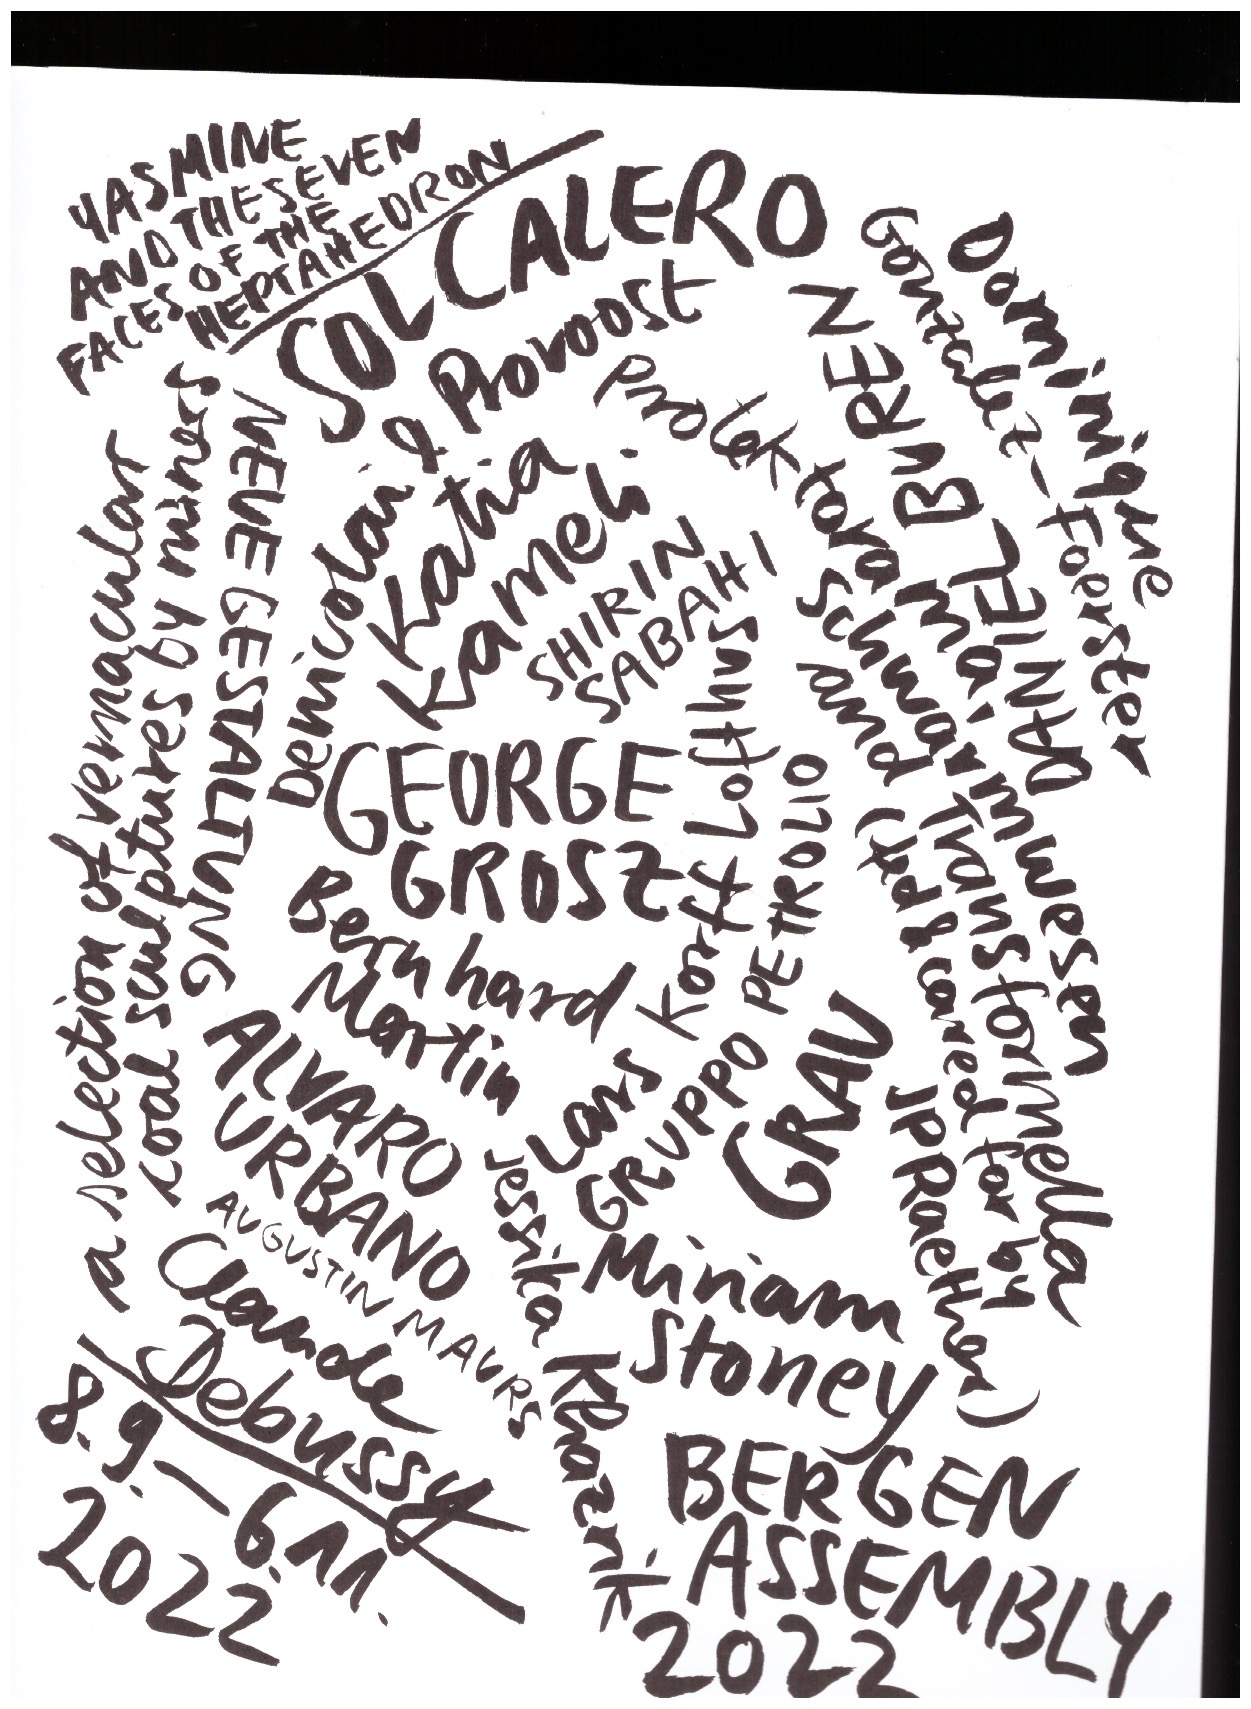 YASMINE
AND THE SEVEN
FACES OF THE
HEPTAHEDRON
SOL CALERO
Dominique
Gonzalez-Foerster
DANIEL BUREN
Denicolai & Provoost
Katia
Kameli
SHIRIN
SABAHI
Prolek torama,
Schwarmwesen
and Transformella
(fed & cared for by
JP Raether)
a selection of vernacular
coal sculptures by miners
NEUE GESTALTUNG
GEORGE
GROSZ
Lars Korff Lofthus
GRUPPO PETROLIO
GRAU
Bernhard
Martin
ALVARO
URBANO
AUGUSTIN MAURS
Claude
Debussy
Jessika Khazrik
Miriam
Stoney
8.9.–6.11.
2022
BERGEN
ASSEMBLY
2022